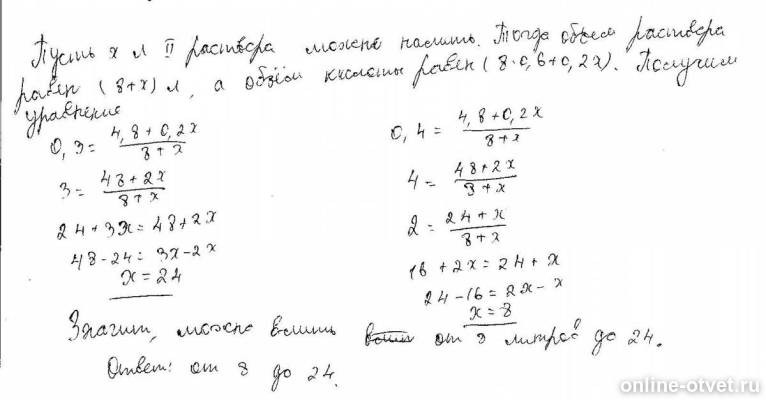 Пусть x л II раствора можно налить. Тогда объем раствора
равен (8+x) л, а объём кислоты равен (8·0,6+0,2x). Получим
уравнение
0,3 = (4,8+0,2x)/(8+x)
3 = (48+2x)/(8+x)
24+3x = 48+2x
48-24 = 3x-2x
x = 24
0,4 = (4,8+0,2x)/(8+x)
4 = (48+2x)/(8+x)
2 = (24+x)/(8+x)
16+2x = 24+x
24-16 = 2x-x
x = 8
Значит, можно влить от 8 литров до 24.
Ответ: от 8 до 24.
online-otvet.ru